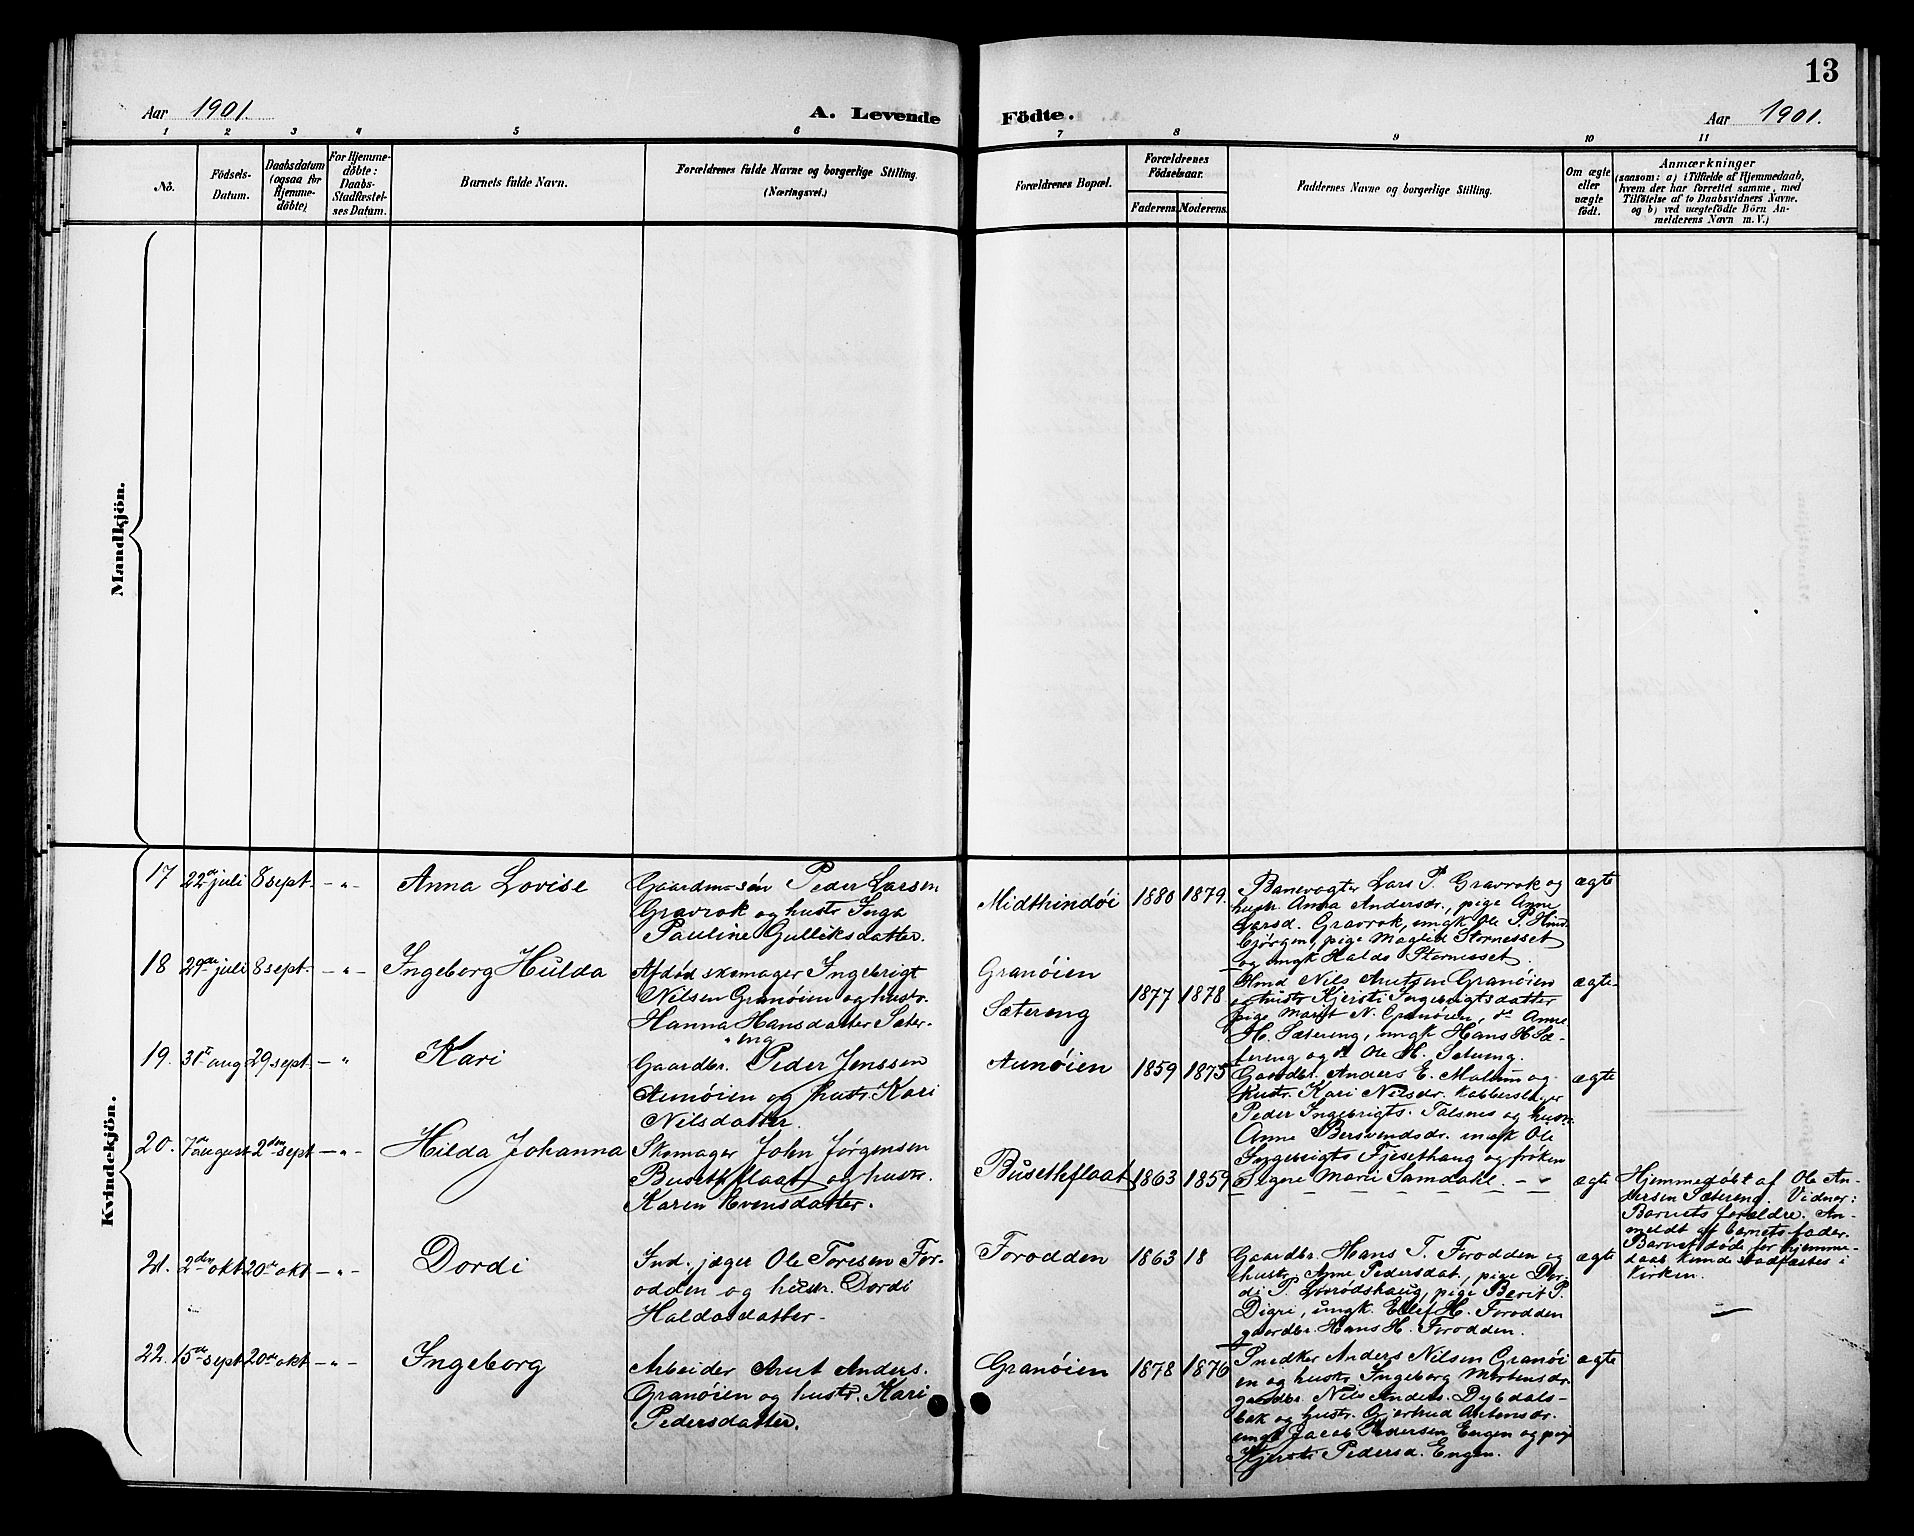 13
Aar 1901.
A. Levende
Födte.
Aar 1901.
1 2 3 4 5 6 7 8 9 10 11
No.
Födsels-
Datum.
Daabsdatum
(ogsaa for
Hjemme-
döbte)
For Hjemme-
döbte:
Daabs-
Stadfæstel-
ses Datum.
Barnets fulde Navn.
Forældrenes fulde Navne og borgerlige Stilling.
(Næringsvei.)
Forældrenes Bopæl.
Forældrenes
Födselsaar.
Faderens.
Moderens.
Faddernes Navne og borgerlige Stilling.
Om ægte
eller
uægte
födt.
Anmærkninger
(saasom: a) i Tilfælde af Hjemmedaab,
hvem der har forrettet samme, med
Tilföielse af to Daabsvidners Navne.
og b) ved uægtefödte Börn An-
melderens Navn m. V.)
Mandkjön.
Kvindekjön.
17 22de juli 8 sept. - " - Anna Lovise
Gaardm-søn Peder Larsen
Gravrok og hustr Inga
Pauline Gulliksdatter.
Midthindöi 1880 1879.
Banevogter Lars P. Gravrok og
hustr. Anna Andersdr., pige Anne
Larsd. Gravrok, ungk Ole P. Hind
bjørgen, pige Magled Stornesset
og ungk Halds Stornesset.
ægte
18 29de juli 8 sept. - " - Ingeborg Hulda
Afdød skomager Ingebrigt
Nilsen Granöien og hustr.
Hanna Hansdatter Sæter-
eng
Granöien
Sætereng
1877 1878
Nils Arntsen Granöien
og hustr Kjersti Ingebrigtsdatter
pige Marit N. Granöien, do Anne
H. Sætereng, ungk Hans H Sæ-
tereng og do Ole H. Setereng.
ægte
19. 31te aug 29 sept. - " Kari
Gaardbr. Peder Jenssen
Aunöien og hustr. Kari
Nilsdatter.
Aunöien 1859 1875
Gaardbr. Anders E. Malum og
hustr. Kari Nilsdr.
Peder Ingebrigts. Talsnes og hustr.
Anne Bersvendsdr. ungk Ole
Ingebrigts Fjesethaug og frøken
Signe Marie Samdahl. - " -
ægte
20. 7de august 2den sept - " - Hilda Johanna
Skomager John Jørgensen
Busethflaat og hustr.
Karen Evensdatter.
Busethflaat 1863 1859
ægte
Hjemmedøbt af Ole An-
dersen Sætereng. Vidner:
Barnets forældre. An-
meldt af barnets fader.
Barnet døde før hjemme-
daab kunde stadfæstes i
Kirken.
21. 2den okt 20de okt - " - Dordi
Ind. jæger Ole Toresen For-
odden og hustr. Dordi
Haldosdatter
Forodden 1863 18
Gaardbr. Hans T. Forodden og
hustr. Anne Pedersdat., pige Dor-
di P. pige Berit P.
Digri, ungk. Ellef H. Forodden
gaardbr. Hans H. Forodden.
ægte
22. 15de sept 20de okt - " - Ingeborg
Arbeider Arnt Anders.
Granöien og hustr. Kari
Pedersdatter.
Granöien 1878 1876
Snedker Anders Nilsen Granöi
en og hustr. Ingeborg Mortensdr
gaardbr. Nils Anders. Dybdals-
bak og hustr. Gjertrud Arntensdr.
ungk Jacob Pedersen Engen og pige
Kjersti Pedersd. Engen.
ægte